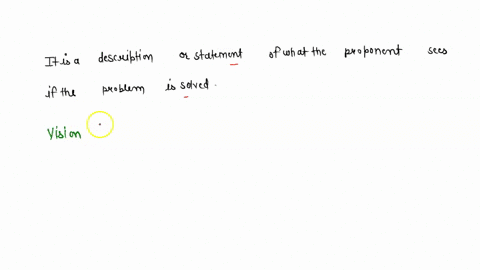 It is a description or statement of what the proponent sees
if the problem is solved.
Vision